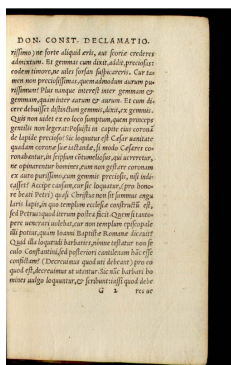 DON. CONST. DECLAMATIO.
rissimo) ne forte aliquid æris, aut scoriæ crederes
admixtum. Et gemmas cum dixit, addit, preciosas:
eodem timore, ne uiles forsan suspicareris. Cur ta-
men non preciosissimas, quemadmodum aurum pu-
rissimum? Plus nanque interest inter gemmam &
gemmam, quàm inter aurum & aurum. Et cum di-
cere debuisset distinctum gemmis, dixit, ex gemmis.
Quis non uidet ex eo loco sumptum, quem princeps
gentilis non legerat: Posuisti in capite eius coronã
de lapide precioso? Sic loquutus est Cæsar uanitate
quadam coronæ suæ iactandæ, si modo Cæsares co-
ronabantur, in seipsum cõtumeliosus, qui uereretur,
ne opinarentur homines, eum non gestare coronam
ex auro purissimo, cum gemmis preciosis, nisi indi-
casset? Accipe causam, cur sic loquatur, (pro hono-
re beati Petri) quasi Christus non sit summus angu
laris lapis, in quo templum ecclesiæ constructũ est,
sed Petrus: quod iterum postea facit. Quem si tanto-
pere uenerari uolebat, cur non templum episcopale
illi potius, quàm Ioanni Baptistæ Romanæ dicauit?
Quid illa loquendi barbaries, nónne testatur non se
culo Constantini, sed posteriori cantilenam hãc esse
confictam? (Decreuimus quod uti debeant) pro eo
quod est, decreuimus ut utantur. Sic nũc barbari ho
mines uulgo loquuntur, & scribunt: iussi quod debe
G 2 res ue